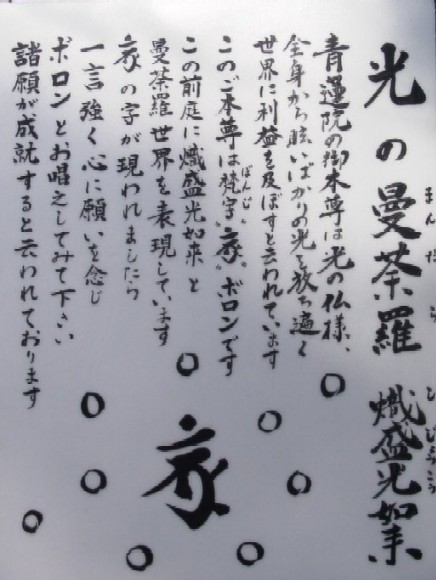 光の曼荼羅 熾盛光如来
まんだら しじょうこう
青蓮院の御本尊は光の仏様、
全身から眩いばかりの光を放ち遍く
世界に利益を及ぼすと云われています
このご本尊は梵字" "ボロンです
ぼんじ
この前庭に熾盛光如来と
曼荼羅世界を表現しています
の字が現われましたら
一言強く心に願いを念じ
ボロンとお唱えしてみて下さい
諸願が成就すると云われております